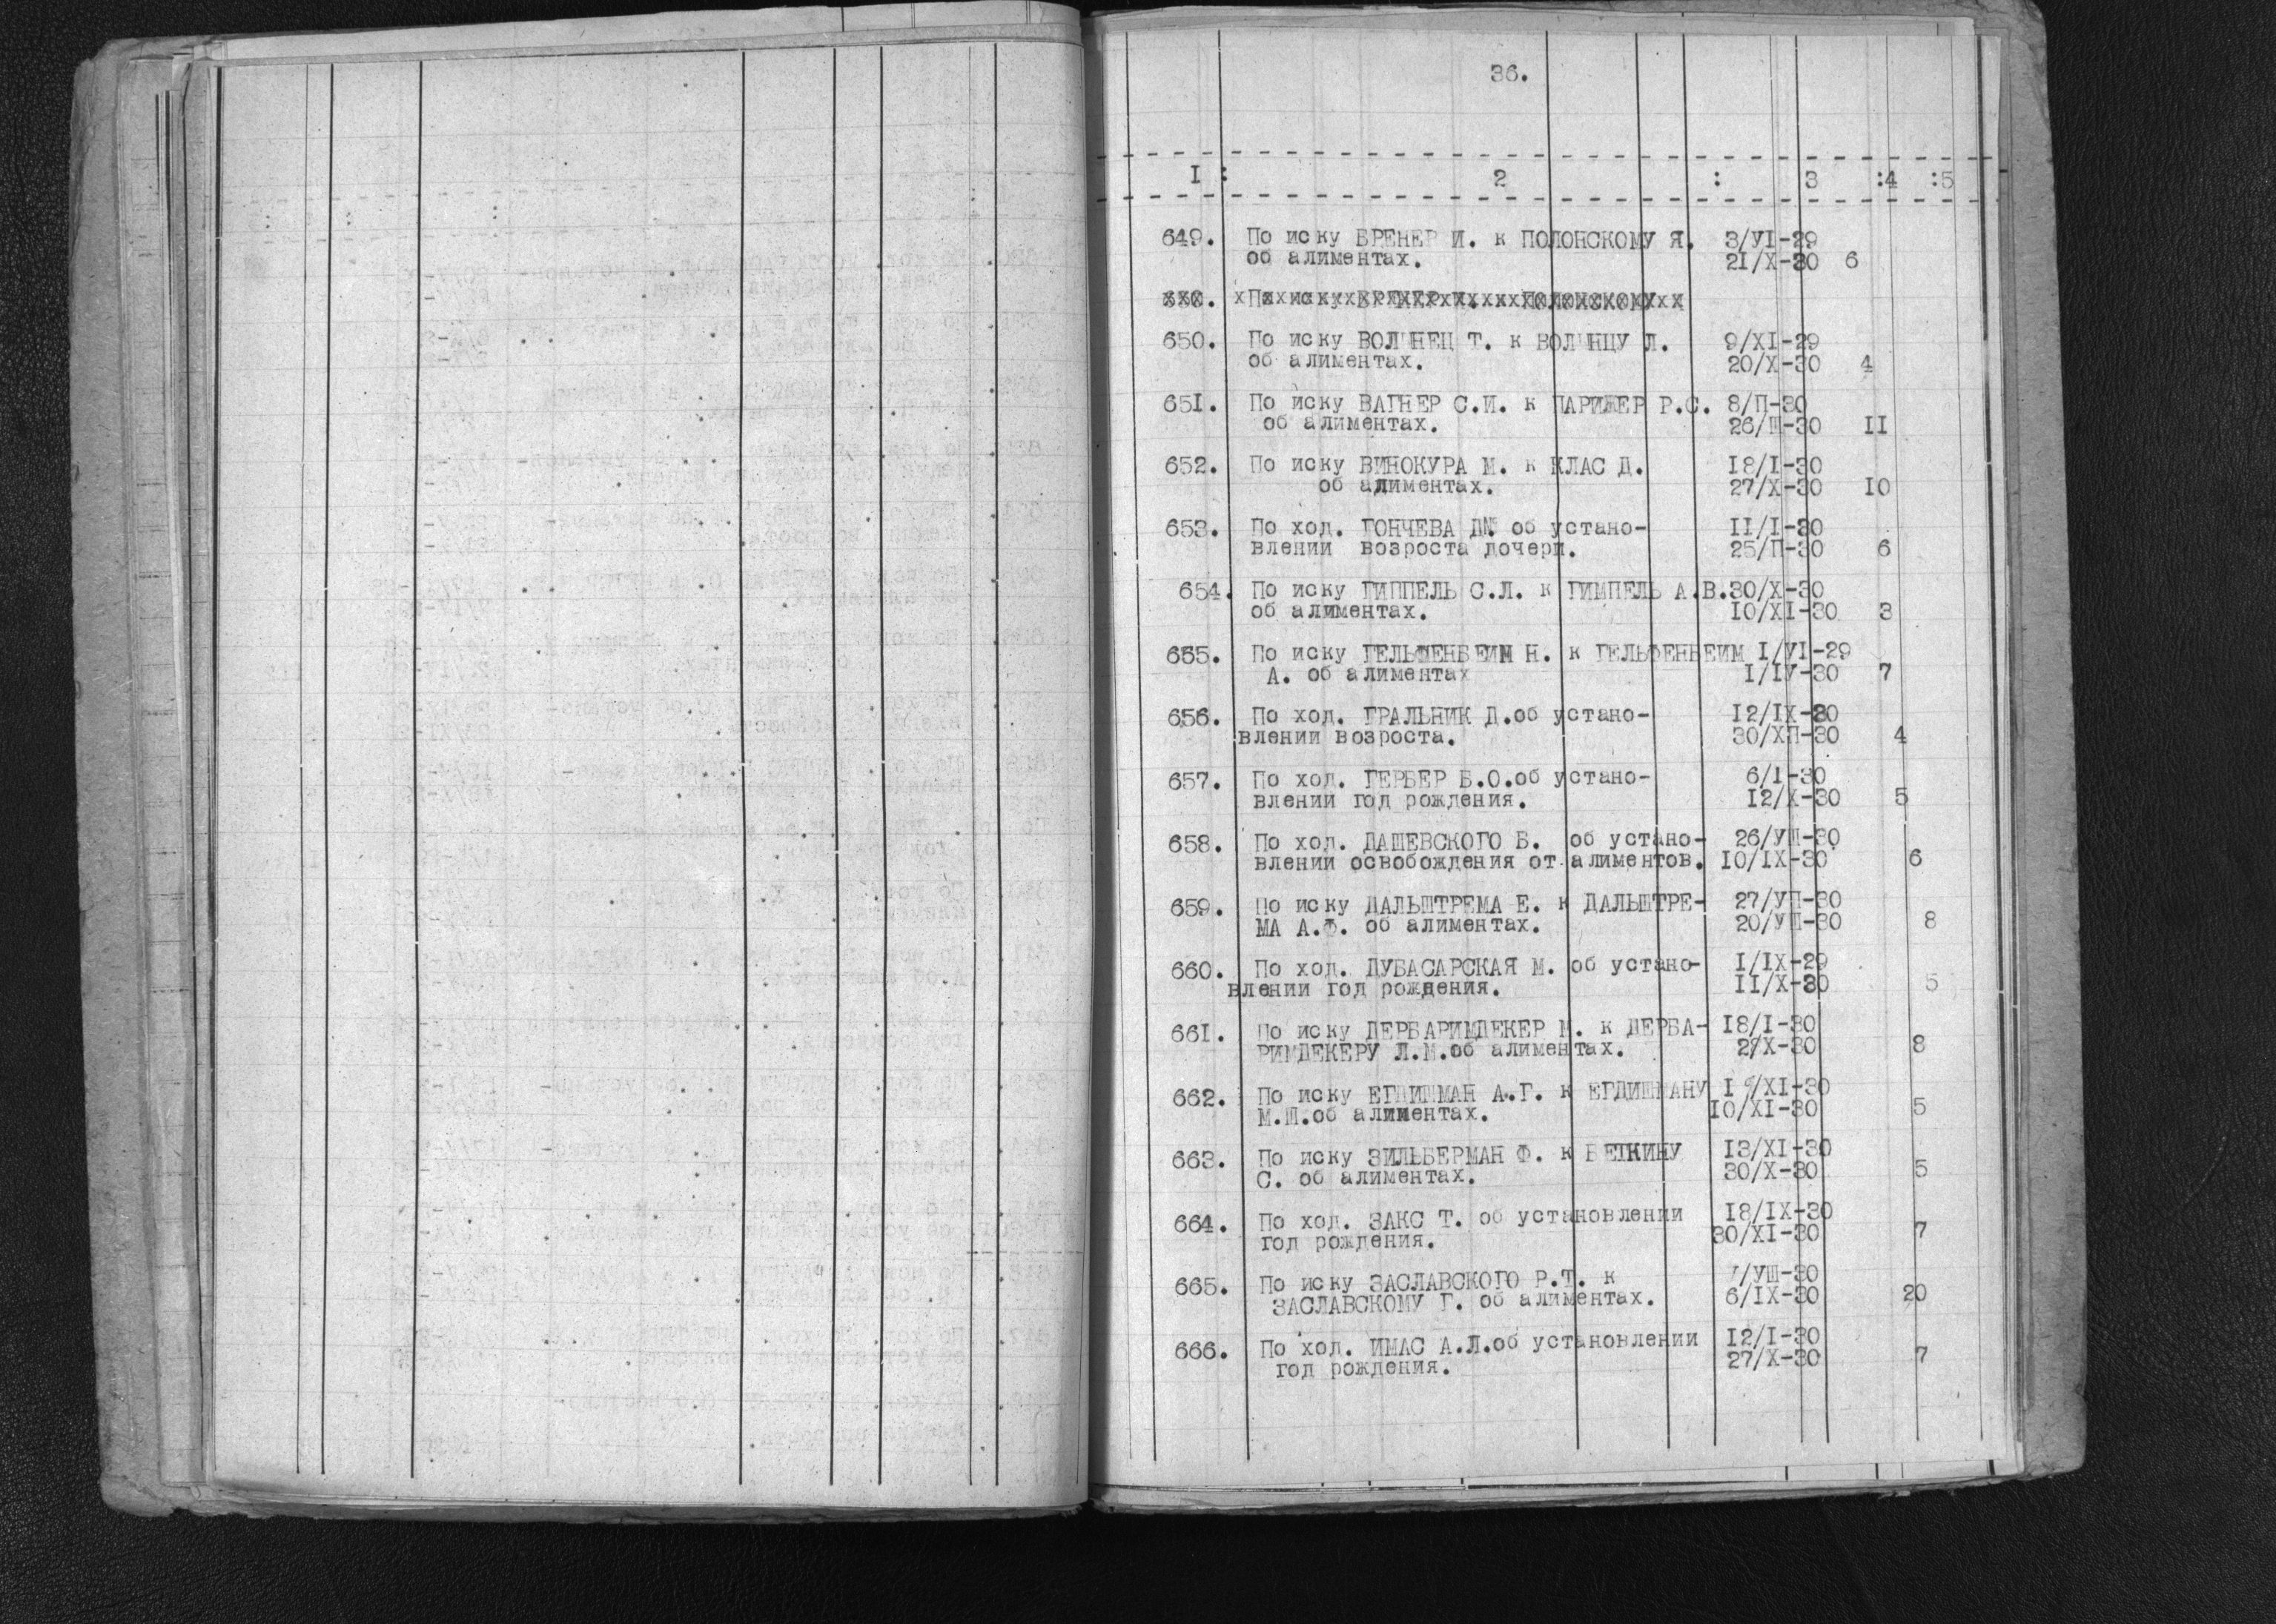 36.
I : 2 : 3 :4 :5
649. По иску БРЕНЕР И. к ПОЛОНСКОМУ Я. 3/УI-29
об алиментах. 21/Х-30 6
650. По иску ВОЛЫНЕЦ Т. к ВОЛЫНЦУ Л. 9/ХI-29
об алиментах. 20/Х-30 4
651. По иску ВАГНЕР С.И. к ПАРИЖЕР Р.С. 8/П-30
об алиментах. 26/Ш-30 II
652. По иску ВИНОКУРА М. к КЛАС Д. I8/I-30
об алиментах. 27/Х-30 IO
653. По ход. ГОНЧЕВА Д. об устано- II/I-30
влении возроста дочери. 25/П-30 6
654. По иску ГИППЕЛЬ С.Л. к ГИМПЕЛЬ А.В. 30/Х-30
об алиментах. IO/ХI-30 3
655. По иску ГЕЛЬФЕНБЕИМ Н. к ГЕЛЬФЕНБЕИМ I/УI-29
А. об алиментах I/IУ-30 7
656. По ход. ГРАЛЬНИК Д.об устано- I2/IХ-30
влении возроста. 30/ХП-30 4
657. По ход. ГЕРБЕР Б.О.об устано- 6/I-30
влении год рождения. I2/Х-30 5
658. По ход. ДАШЕВСКОГО Б. об устано- 26/УШ-30
влении освобождения от алиментов. IO/IХ-30 6
659. По иску ДАЛЬШТРЕМА Е. к ДАЛЬШТРЕ- 27/УП-30
МА А.Ф. об алиментах. 20/УШ-30 8
660. По ход. ДУБАСАРСКАЯ М. об устано- I/IХ-29
влении год рождения. II/Х-30 5
661. По иску ДЕРБАРИМДЕКЕР М. к ДЕРБА- I8/I-30
РИМДЕКЕРУ Л.М.об алиментах. 27/Х-30 8
662. По иску ЕГДИШМАН А.Г. к ЕГДИШМАНУ /ХI-30
М.Ш.об алиментах. IO/ХI-30 5
663. По иску ЗИЛЬБЕРМАН Ф. к ВЕТКИНУ I3/ХI-30
С. об алиментах. 30/Х-30 5
664. По ход. ЗАКС Т. об установлении I8/IХ-30
год рождения. 30/ХI-30 7
665. По иску ЗАСЛАВСКОГО Р.Т. к /УШ-30
ЗАСЛАВСКОМУ Г. об алиментах. 6/IХ-30 20
666. По ход. ИМАС А.Л.об установлении I2/I-30
год рождения. 27/Х-30 7